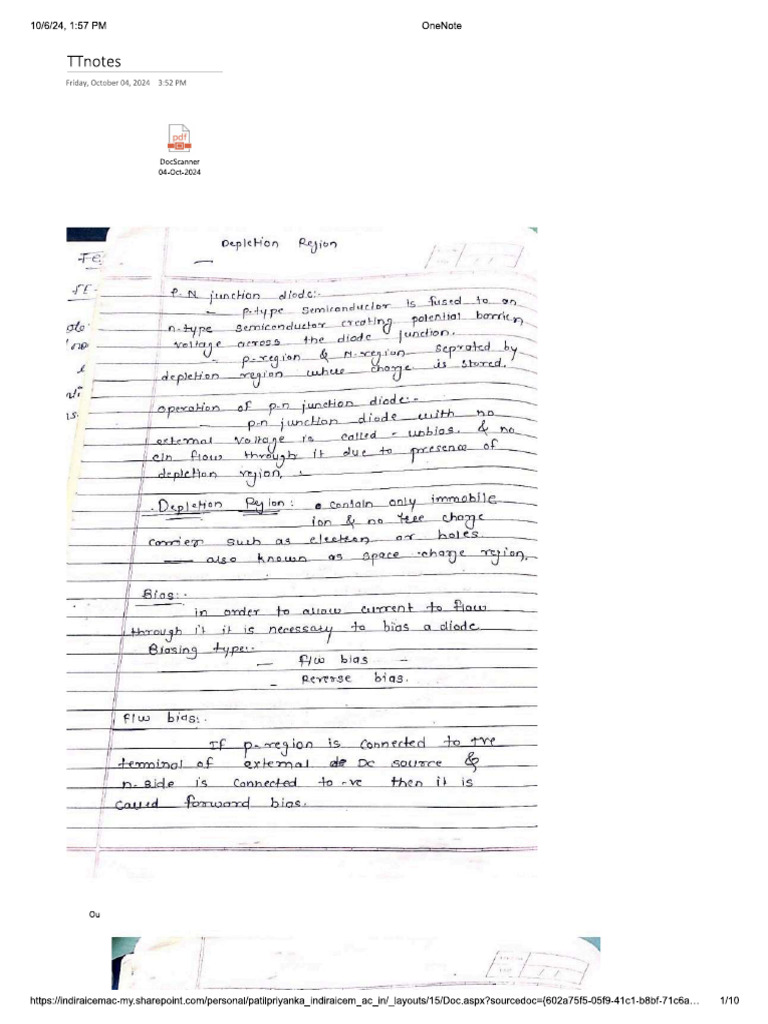 10/6/24, 1:57 PM
OneNote
TTnotes
Friday, October 04, 2024 3:52 PM
pdf
DocScanner
04-Oct-2024
Depletion Region
P-N junction diode:-
— p-type semiconductor is fused to an
n-type semiconductor creating potential barrier
voltage across the diode junction.
- p-region & N-region seprated by
depletion region where charge is stored.
operation of p-n junction diode:-
— p-n junction diode with no
external voltage is called - unbias. & no
flow through it due to presence of
depletion region.
Depletion Region: contain only immobile
ion & no free charge
carrier such as electron or holes.
— also known as space charge region.
Bias:-
in order to allow current to flow
through it it is necessary to bias a diode
Biasing type:-
— F/w bias —
- Reverse bias.
F/w bias:-
If p-region is connected to +ve
terminal of external DC source &
n-side is connected to -ve then it is
called forward bias.
Ou
https://indiraicemac-my.sharepoint.com/personal/patilpriyanka_indiraicem_ac_in/_layouts/15/Doc.aspx?sourcedoc={602a75f5-05f9-41c1-b8bf-71c6a…
1/10